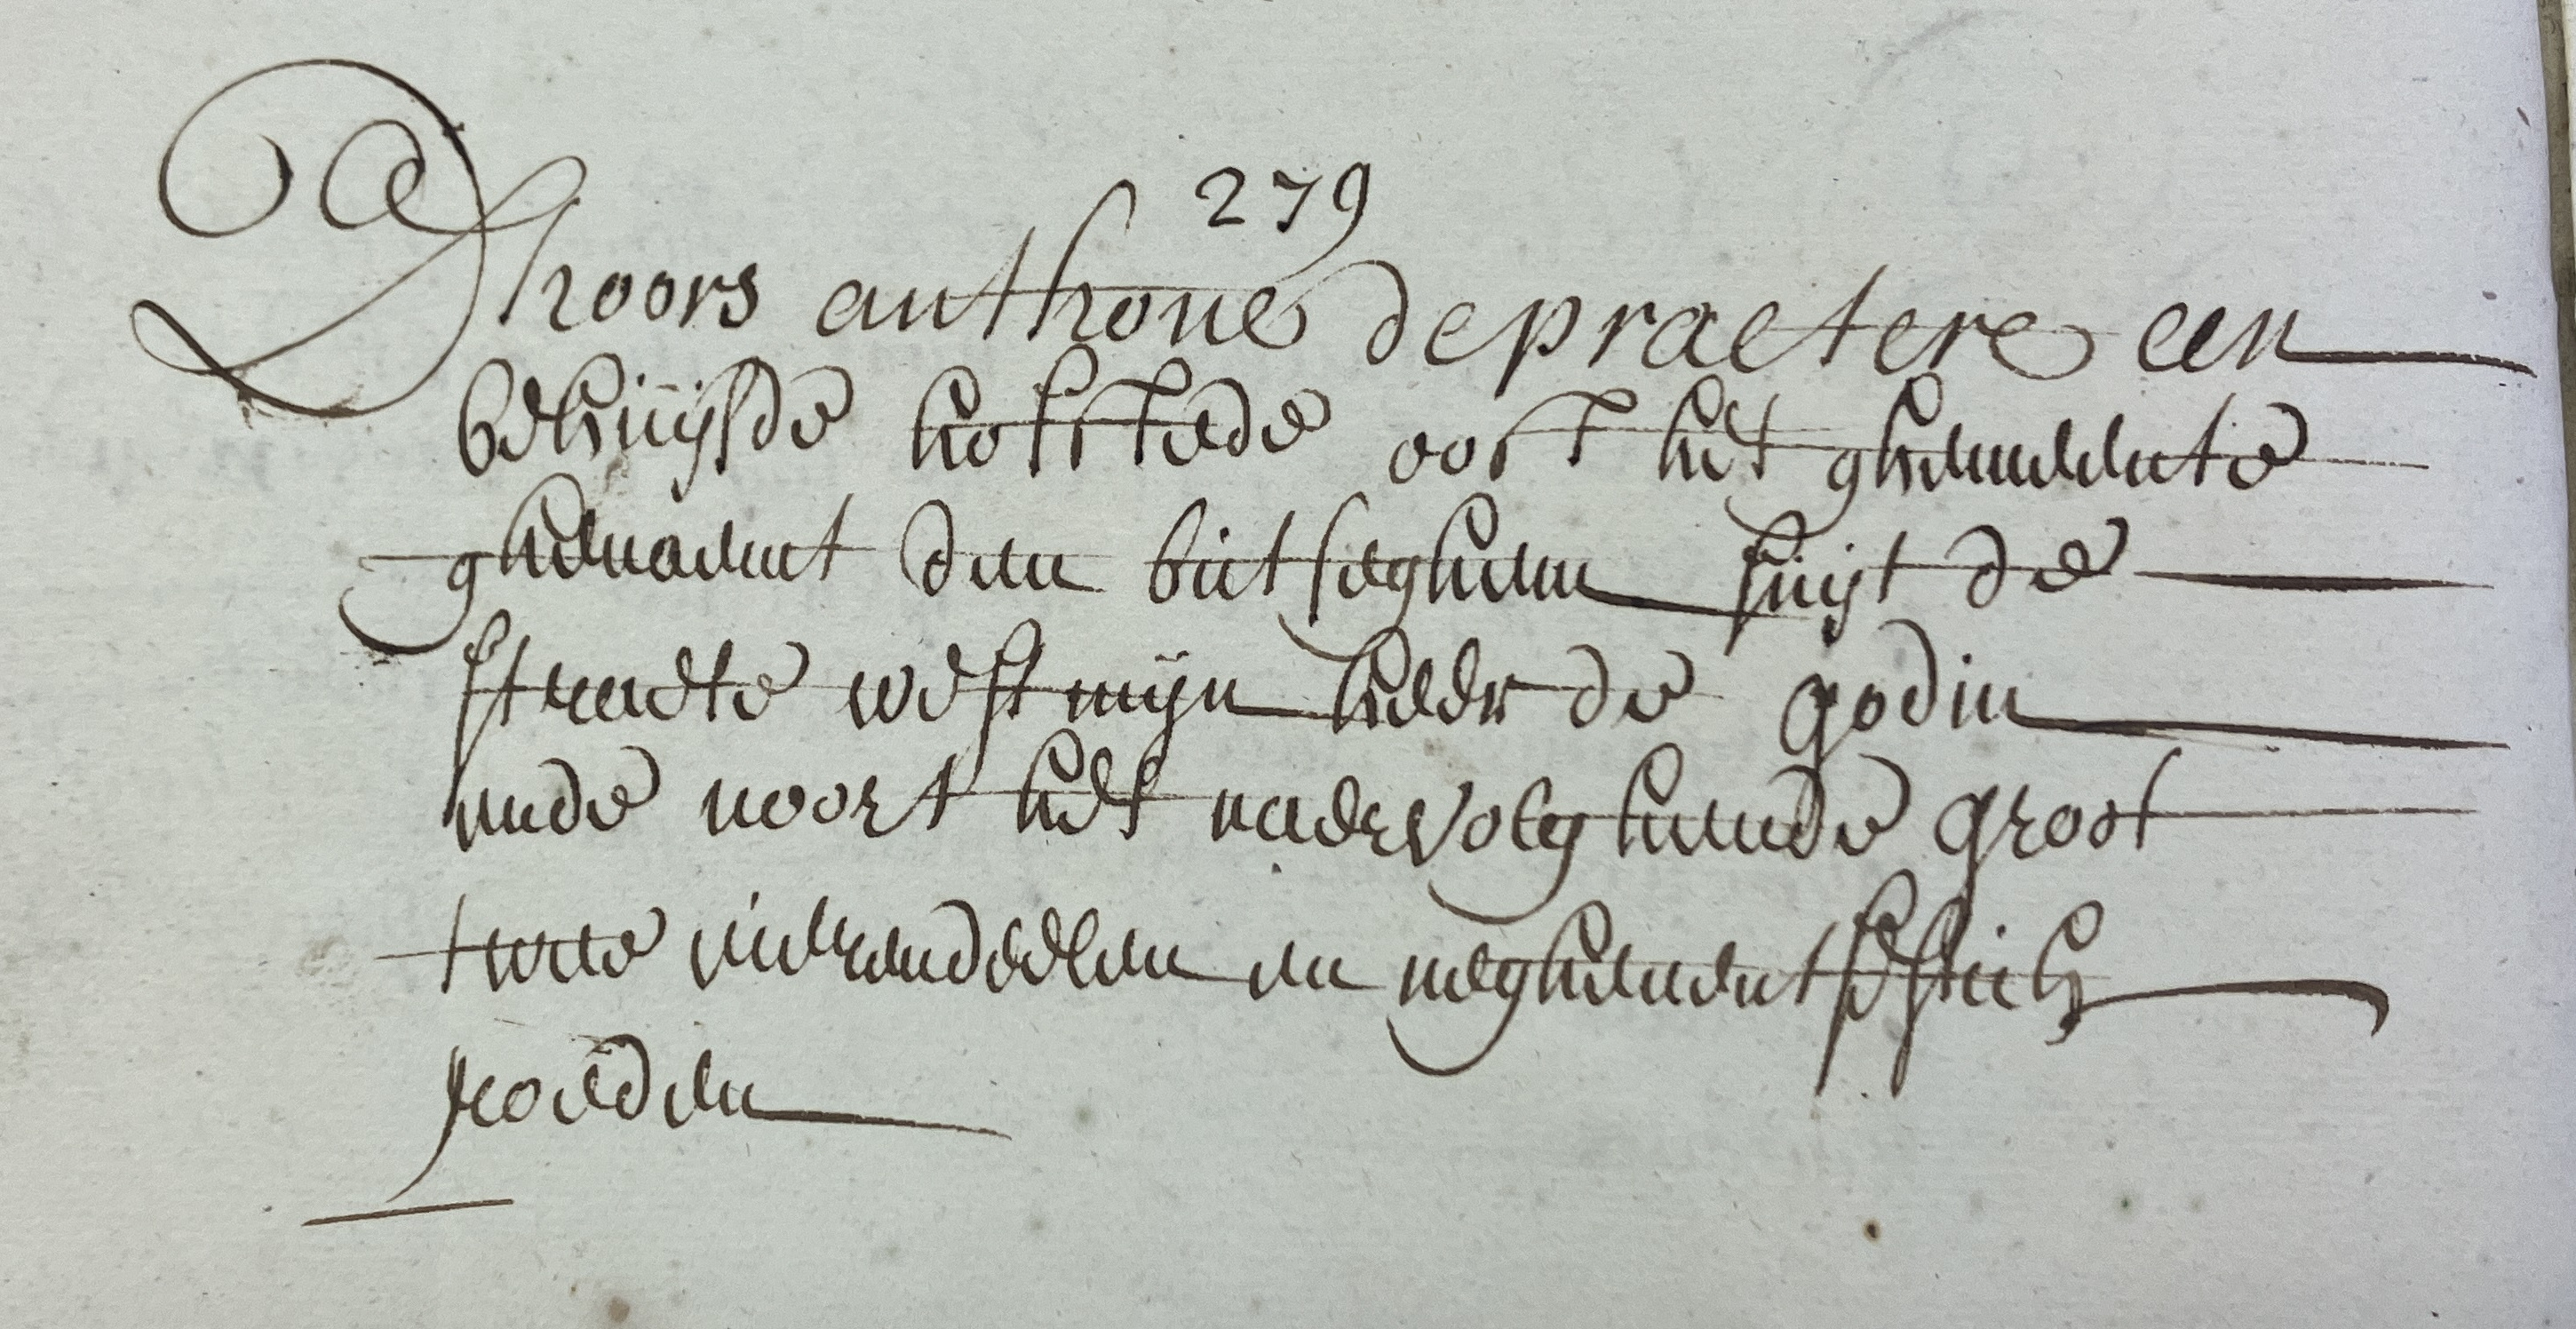 279
Dhoors anthone de praetere een
behuijsde hofstede oost het ghemeente
ghenaemt den bietseghem suijt de
straete west mijn heer de godin
ende noort het naervolghende groot
twee vierendeelen en neghenentsestich
roeden